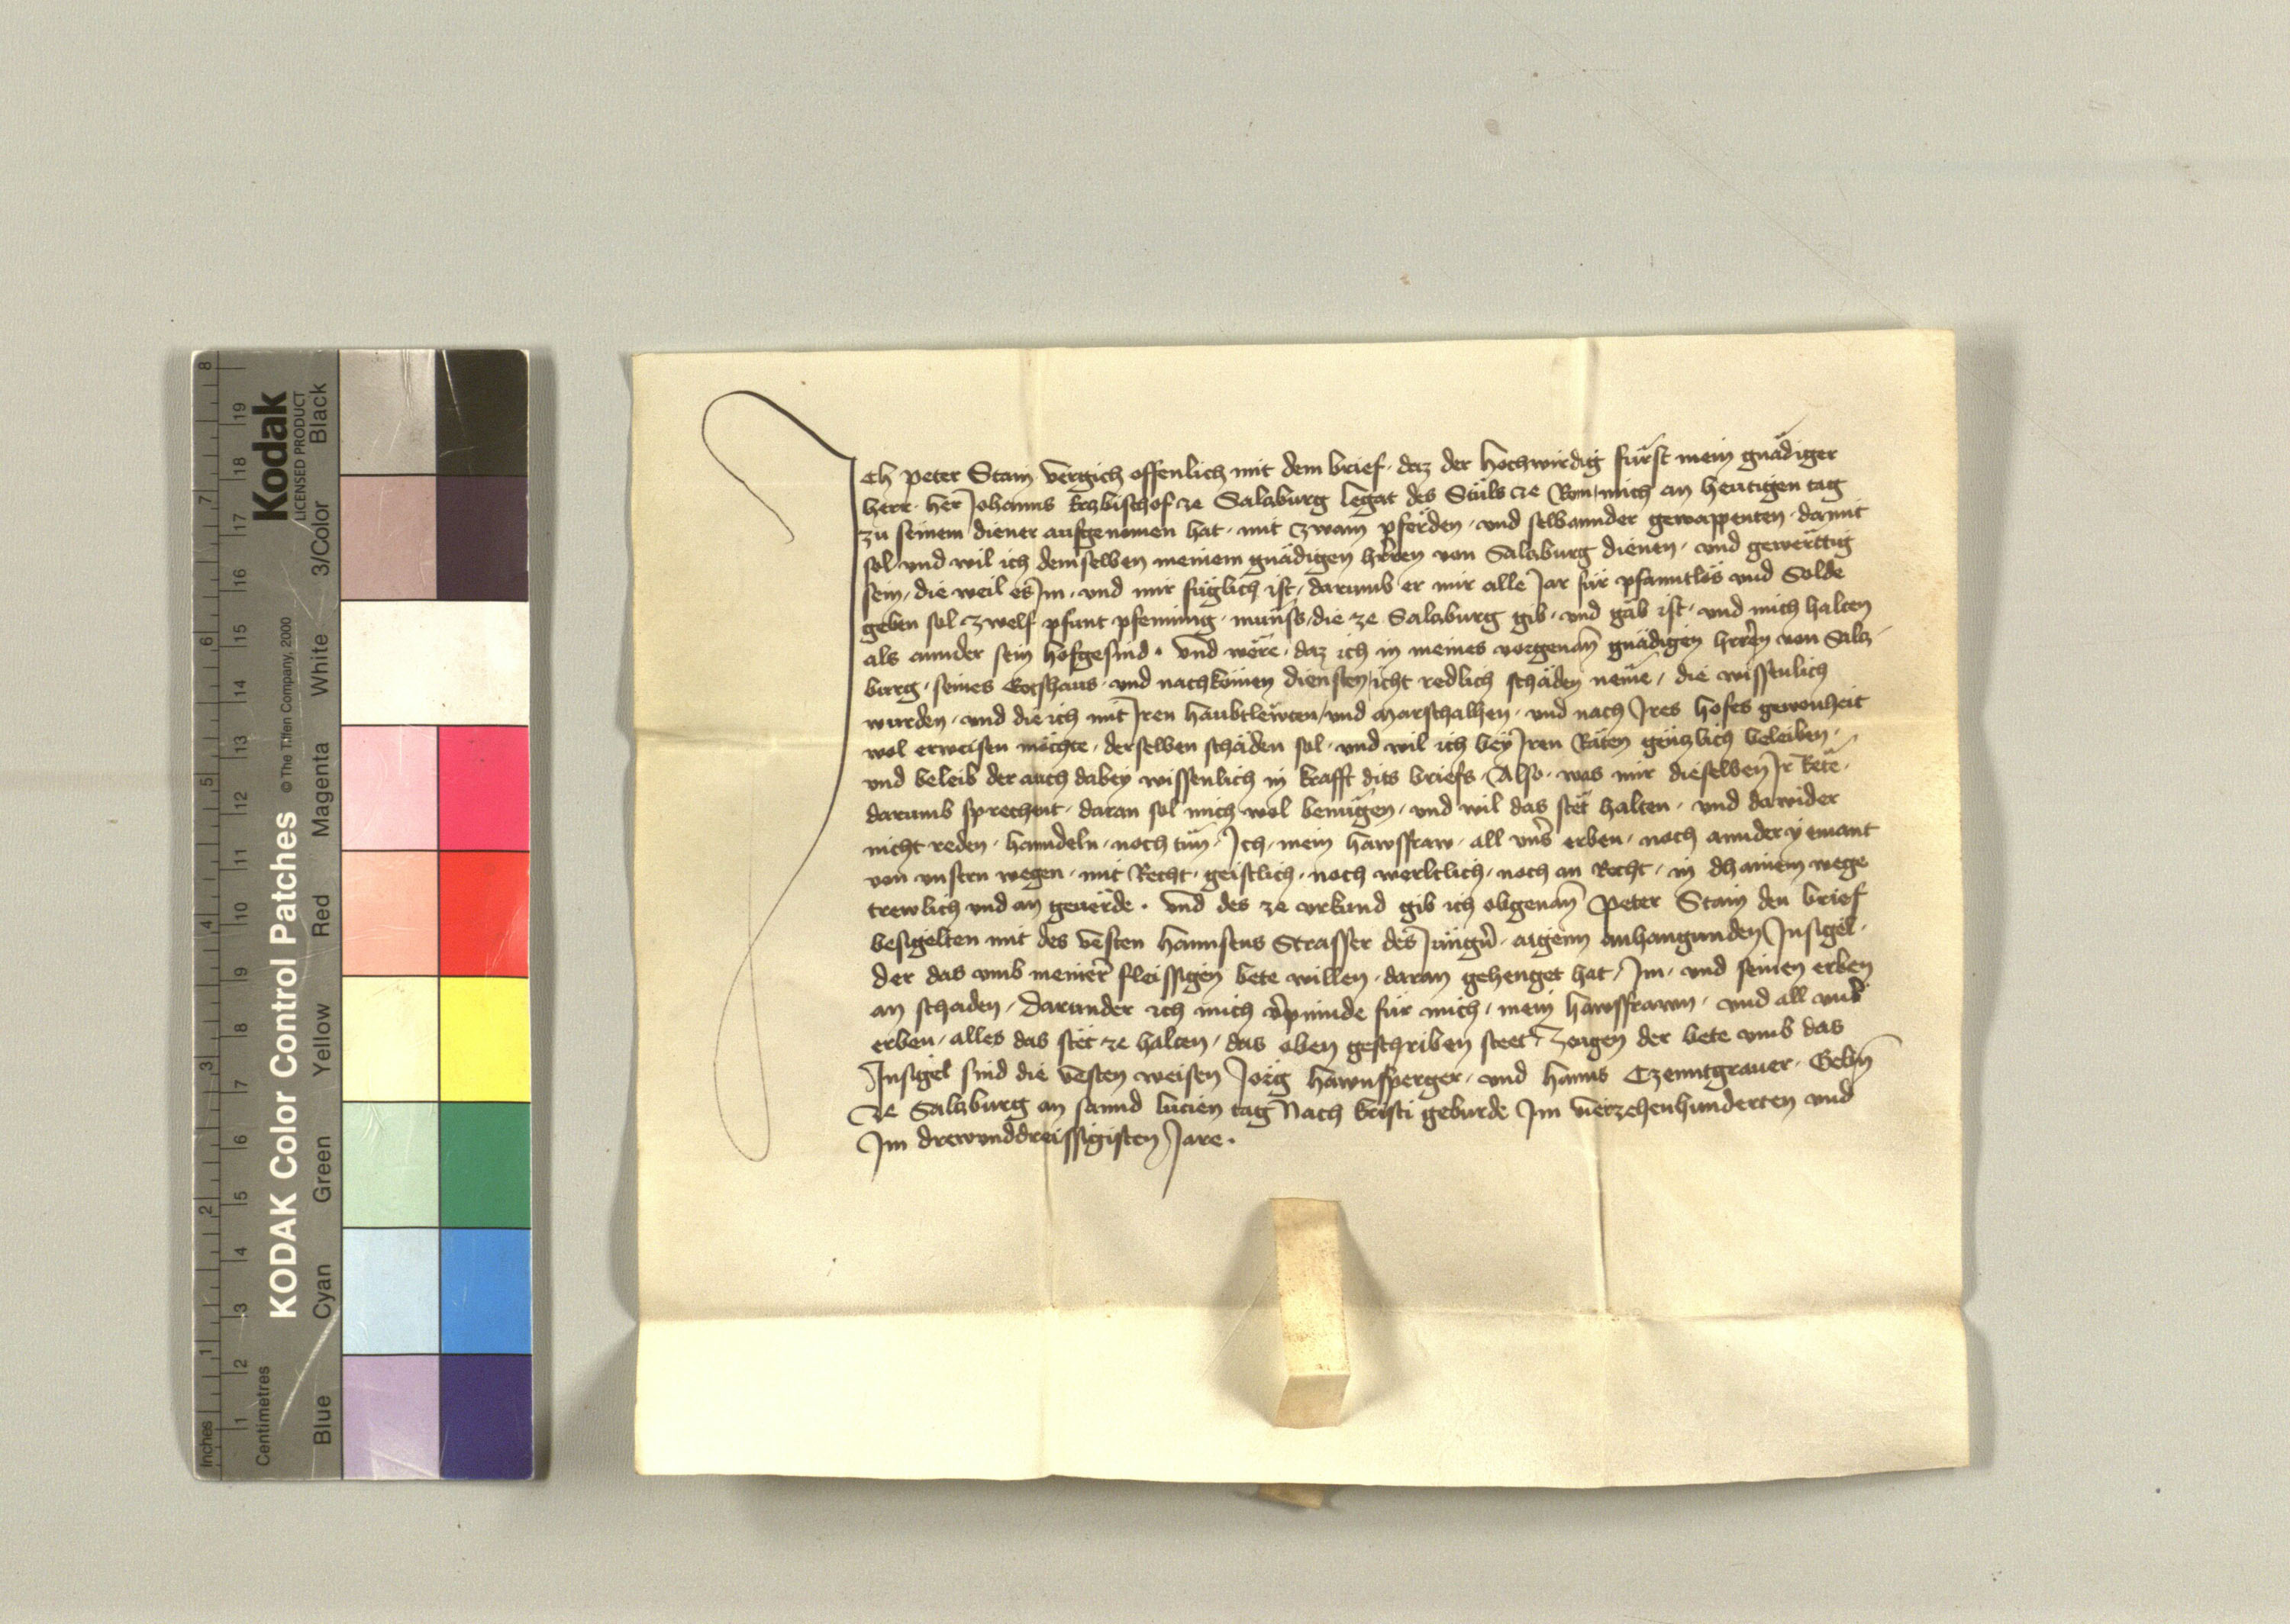 Ich Peter Stain vergich offenlich mit dem brief, daz der hochwirdig fürst mein gnädiger
herr, her Johanns Ertzbischof ze Saltzburg legat des Stüls ze Rom, mich an heutigen tag
zu seinem diener aufgenomen hat, mit zwain pferden, und selbannder gewappenten, damit
sol und wil ich demselben meinem gnädigen herren von Saltzburg dienen, und gewerttig
sein, die weil es Im, und mir füglich ist, darumb er mir alle Jar für pfanntlös und Solde
geben sol zwelf pfunt pfenning, münss, die ze Saltzburg gib, und gäb ist, und mich halten
als annder sein hofgesind. Und wëre, daz ich in meines vorgenan̄ gnädigen herren von Saltz
burg, seines Gotshaus, und nachkomen diensten, icht redlich schäden neme, die wissenlich
wurden, und die ich mit Iren haubtlewten, und Marschalhen, und nach Ires hofes gewonheit
wol erweisen möchte, derselben schäden sol, und wil ich bey Iren Räten genzlich beleiben,
und beleib der auch dabey wissenlich in krafft dits briefs, Also, was mir dieselben Ir Rete,
darumb sprechent, daran sol mich wol benugen, und wil das stet halten, und dawider
nicht reden, hanndeln, noch tun, Ich, mein hawsfraw, all uns̄ erben, noch annder yemant
von unsern wegen, mit Recht, geistlich, noch werltlich, noch an Recht, in dhainem wege
trewlich und an geuërde. Und des ze urkund gib ich obgenan̄ Peter Stain den brief
besigelten mit des vesten Hannsens Strasser des Jüngn̄, aigenn anhangunden Insigel,
der das umb meiner fleissigen bete willen, daran gehenget hat, Im, und seinen erben
an schaden, Darunder ich mich v̄pinnde für mich, mein hawsfrawn, und all uns̄
erben, alles das stët ze halten, das oben geschriben steet, Zeugen der bete umb das
Insigel sind die vesten weisen Jorg Hawnsperger, und Hanns Czenntgrauer, Gebn̄
ze Saltzburg an sannd lucien tag Nach kristi geburde Im vierzehenhunderten und
Im drewunddreissigisten Jare.
KODAK Color Control Patches
© The Tiffen Company, 2000
Kodak
LICENSED PRODUCT
Inches
1 2 3 4 5 6 7 8
Centimetres
1 2 3 4 5 6 7 8 9 10 11 12 13 14 15 16 17 18 19
Blue Cyan Green Yellow Red Magenta White 3/Color Black